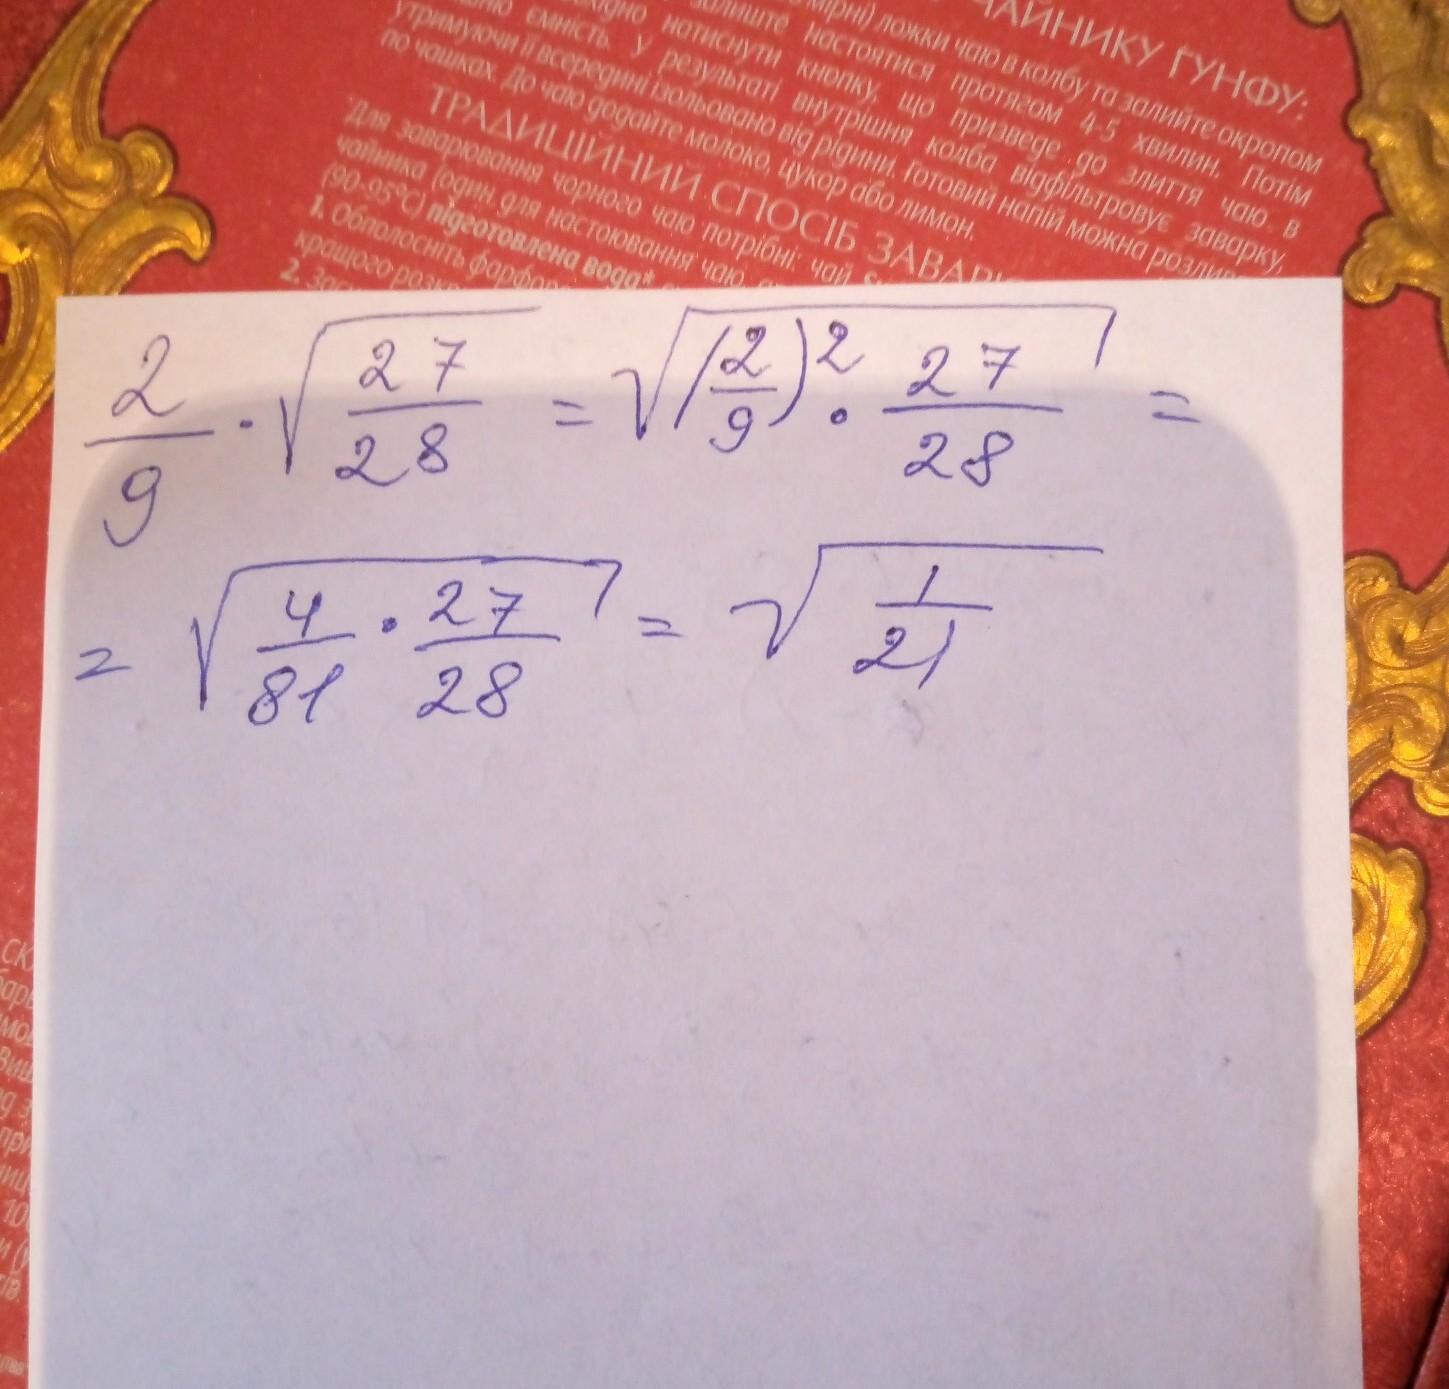 ЧАЙНИКУ ГУНФУ:
мірні) ложки чаю в колбу та залийте окропом
залиште настоятися протягом 4-5 хвилин. Потім
натиснути кнопку, що призведе до злиття чаю в
ємність. У результаті внутрішня колба відфільтровує заварку,
утримуючи її всередині ізольовано від рідини. Готовий напій можна
по чашках. До чаю додайте молоко, цукор або лимон.
ТРАДИЦІЙНИЙ СПОСІБ
Для заварювання чорного чаю потрібні: чай
чайника (один для настоювання чаю,
(90-95°С) підготовлена вода*
1. Обполосніть
кращого
2.
2/9 · √(27/28) = √((2/9)² · 27/28) =
= √(4/81 · 27/28) = √(1/21)